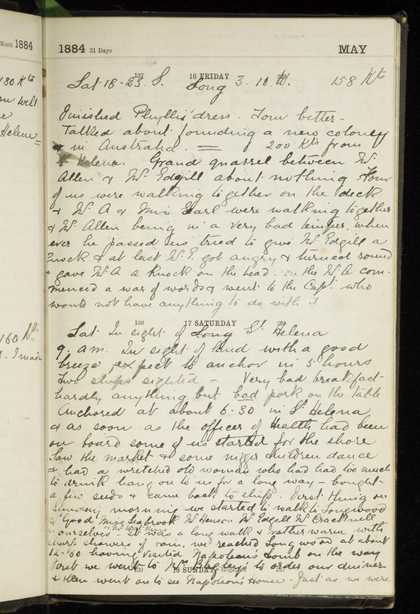 1884
1884 31 Days MAY
16 FRIDAY
Lat. 18-23 S. Long 3.10 W. 158 Kts
Finished Phyllis' dress. Tom better-
Talked about founding a new colony
in Australia. 200 Kts from
St Helena. Grand quarrel between Mr
Allen & Mr Edgill about nothing. Four
of us were walking together on the deck
& Mr A & Miss Earl were walking together
& Mr Allen being in a very bad temper, when
ever he passed us tried to give Mr Edgill a
knock & at last Mr E. got angry & turned round
& gave Mr A a knock on the head. So this Mr A com-
menced a war of words & went to the Capt. who
would not have anything to do with it
17 SATURDAY
Lat. In sight of Long St. Helena
9. a.m. In sight of land with a good
breeze expect to anchor in 5 hours
Two ships sighted - Very bad breakfast
hardly anything but bad pork on the table
Anchored at about 6-30 in St Helena
& as soon as the officer of Health had been
on board some of us started for the shore
Saw the market & some nigger children dance
& had a wretched old woman who had had too much
to drink hang on to us for a long way - bought
a few seeds & came back to ship. First thing on
Sunday morning we started to walk to Longwood
"Good" Miss Seabrook Mr Henson Mr Edgill Mr Cracknell
& ourselves - It was a long walk & rather warm with
showers of rain we reached Longwood at about
having visited Napoleon's tomb on the way
18 SUNDAY
first we went to Mr to order our dinner
& then went on to see Napoleon's House. Just as we were